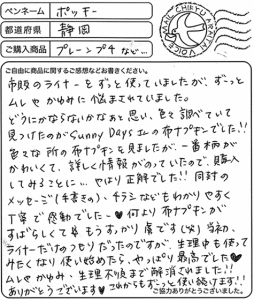 ペンネーム ポッキー
都道府県 静岡
ご購入商品 プレーンプチなど…
ご自由に商品に関するご感想などお書きください。
市販のライナーをずっと使っていましたが、ずっと
ムレやかゆみに悩まされていました。
どうにかならないかなぁと思い、色々調べていて
見つけたのがSunny Daysさんの布ナプキンでした!!
色々な所の布ナプキンを見ましたが、一番柄が
かわいくて、詳しく情報がのっていたので、購入
してみることに…やはり正解でした!!同封の
メッセージ(手書きの)、チラシなどもわかりやすく
丁寧で感動でした…♥何より布ナプキンが
すばらしくて もうすっかり虜です(火)当初、
ライナーだけのつもりだったのですが、生理中も使って
みたくなり使い始めたら、やっぱり最高でした♥
ムレやかゆみ・生理不良まで解消されました!!
ありがとうございます♥これからもずっと使い続けます!!
ご協力ありがとうございました。